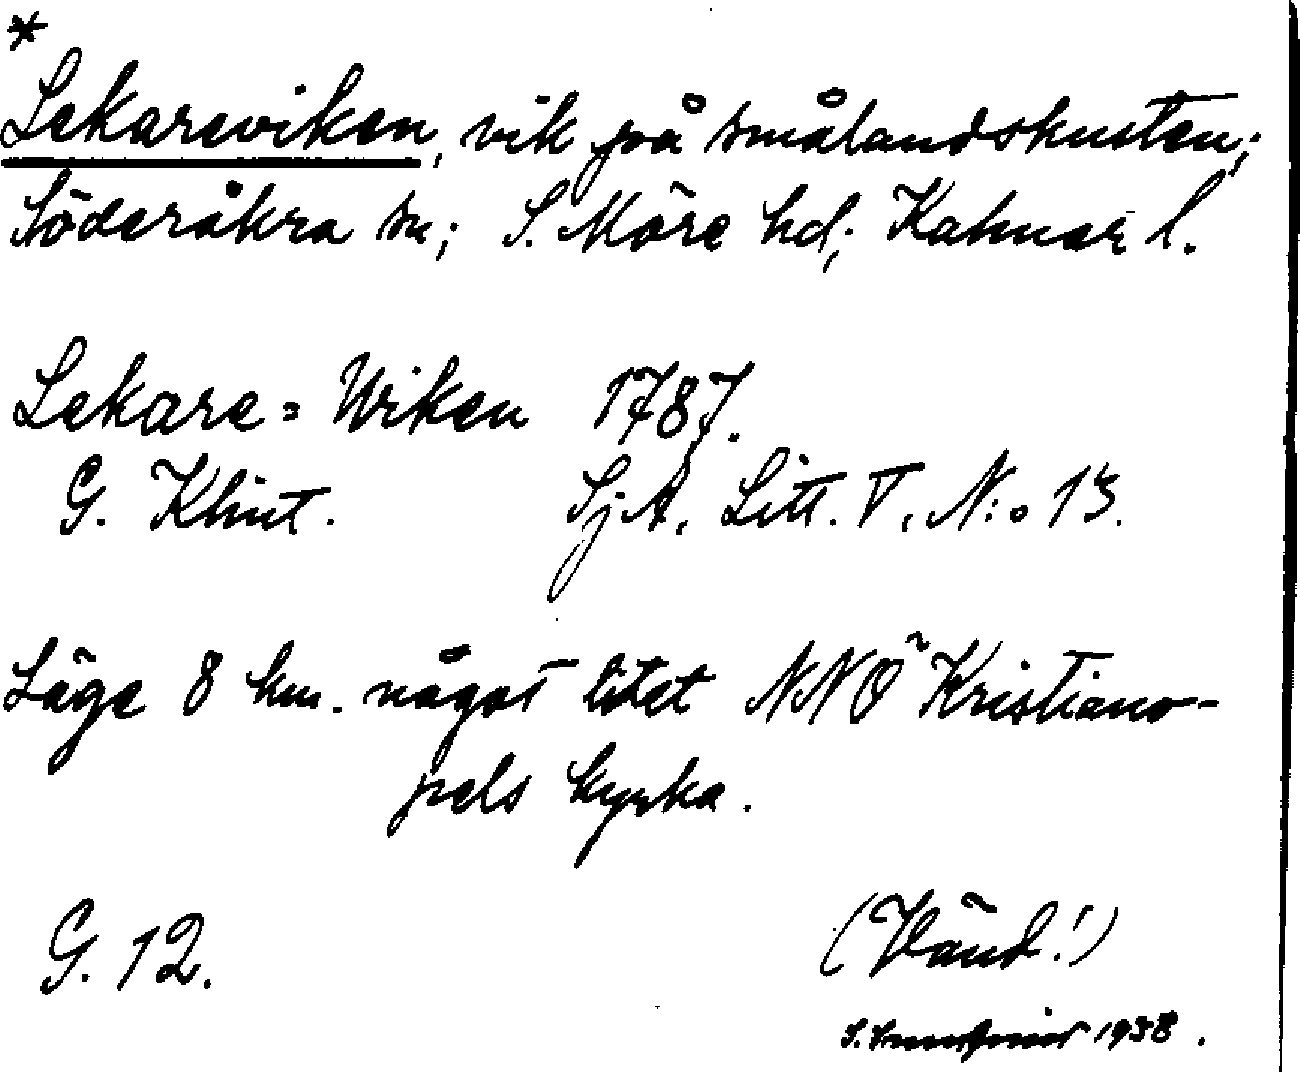 *
Lekareviken, vik på smålandskusten;
Söderåkra sn; S. Möre hd; Kalmar l.
Lekare=Wiken 1787.
G. Klint. SjA, Litt. V, N:o 13.
Läge 8 km. något litet NNÖ Kristiano-
pels kyrka.
G. 12.
(Vänd!)
S. 1938.